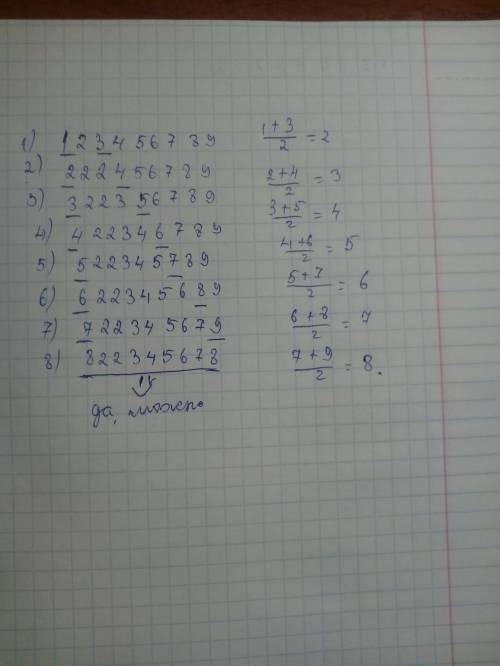 1) 1 2 3 4 5 6 7 8 9
2) 2 2 2 4 5 6 7 8 9
3) 3 2 2 3 5 6 7 8 9
4) 4 2 2 3 4 6 7 8 9
5) 5 2 2 3 4 5 7 8 9
6) 6 2 2 3 4 5 6 8 9
7) 7 2 2 3 4 5 6 7 9
8) 8 2 2 3 4 5 6 7 8
да, можно
1+3/2 = 2
2+4/2 = 3
3+5/2 = 4
4+6/2 = 5
5+7/2 = 6
6+8/2 = 7
7+9/2 = 8.